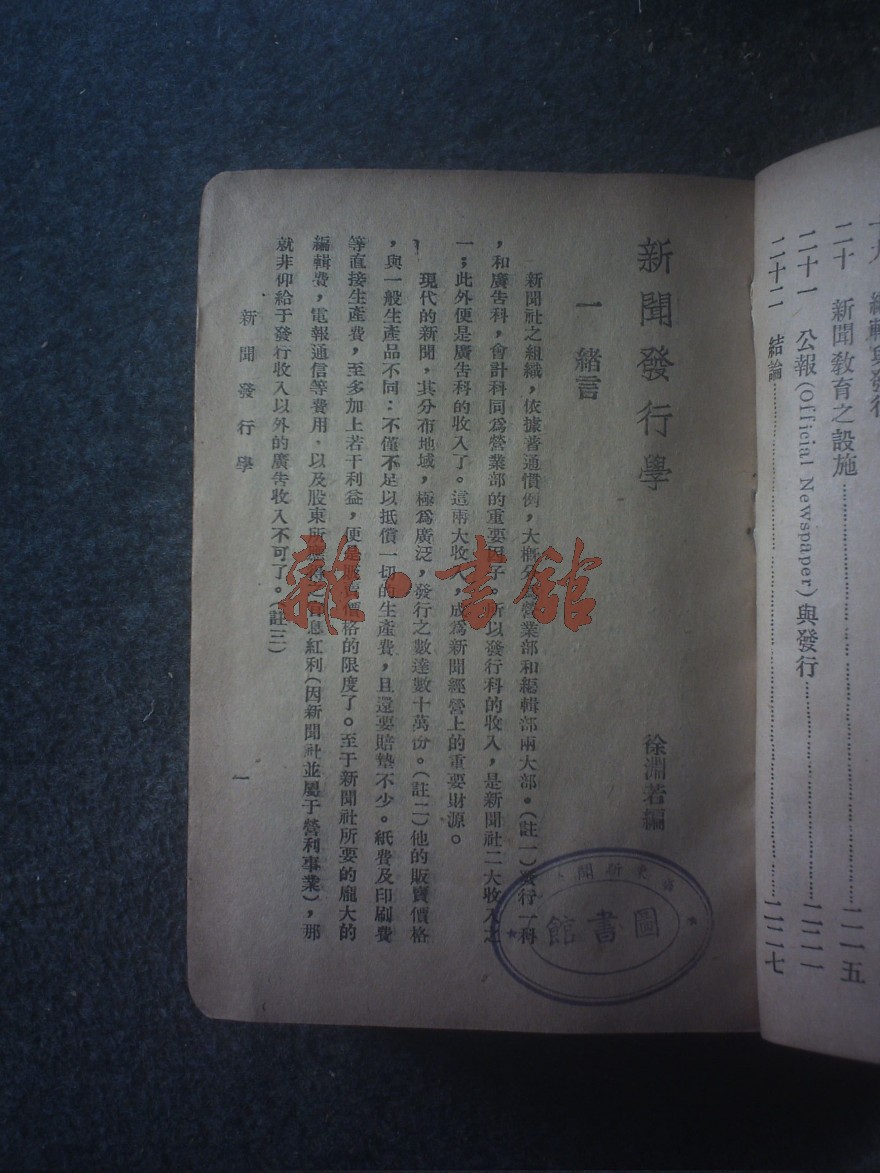 二十 新聞教育之設施……二一五
二十一 公報(Official Newspaper)與發行……二二一
二十二 結論……二二七
新聞發行學
徐淵若編
一 緒言
新聞社之組織，依據普通慣例，大概分為營業部和編輯部兩大部。(註一)發行一科
，和廣告科，會計科同為營業部的重要因子。所以發行科的收入，是新聞社二大收入之
一；此外便是廣告科的收入了。這兩大收入，成為新聞經營上的重要財源。
現代的新聞，其分布地域，極為廣泛，發行之數達數十萬份。(註二)他的販賣價格
，與一般生產品不同：不僅不足以抵償一切的生產費，且還要賠墊不少。紙費及印刷費
等直接生產費，至多加上若干利益，便是販賣價格的限度了。至于新聞社所要的龐大的
編輯費，電報通信等費用，以及股東所 息紅利(因新聞社並屬于營利事業)，那
就非仰給于發行收入以外的廣告收入不可了。(註三)
新聞發行學
一
新聞
圖書館
雜·書館